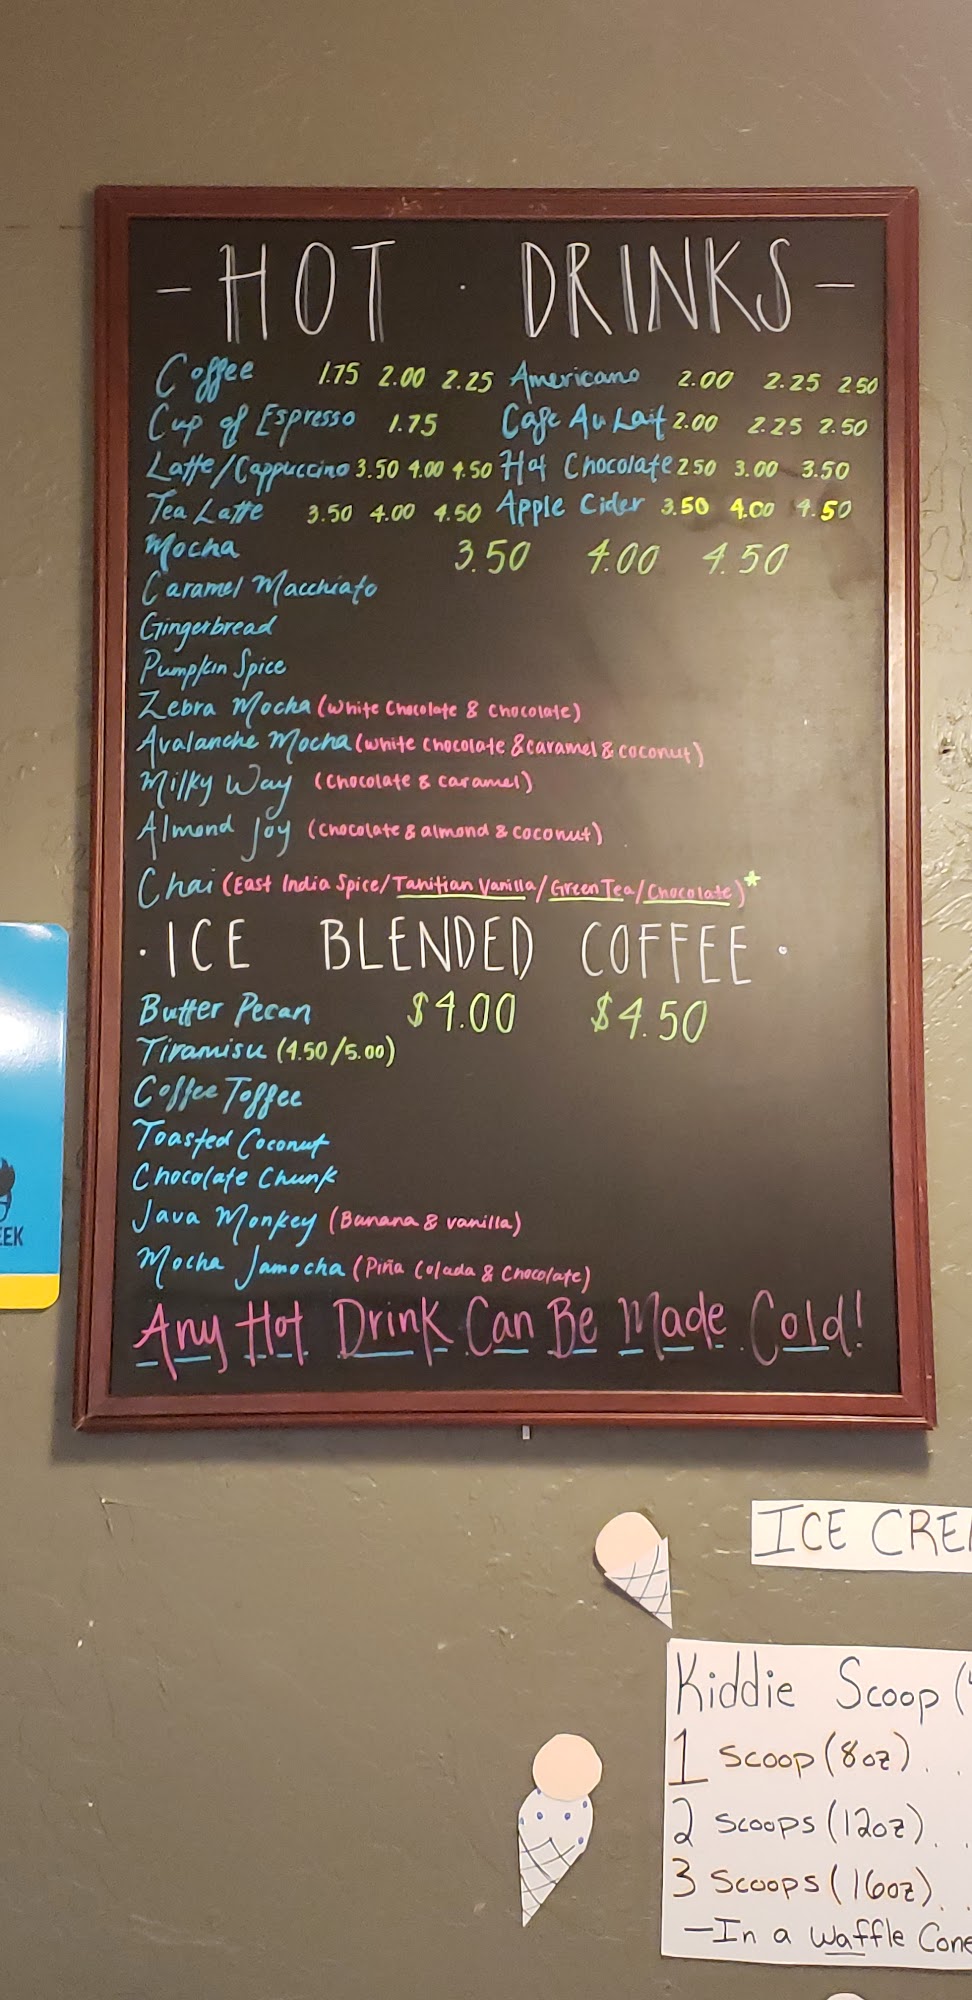 - HOT · DRINKS -
Coffee 1.75 2.00 2.25 Americano 2.00 2.25 2.50
Cup of Espresso 1.75 Cafe Au Lait 2.00 2.25 2.50
Latte/Cappuccino 3.50 4.00 4.50 Hot Chocolate 2.50 3.00 3.50
Tea Latte 3.50 4.00 4.50 Apple Cider 3.50 4.00 4.50
Mocha 3.50 4.00 4.50
Caramel Macchiato
Gingerbread
Pumpkin Spice
Zebra Mocha (White Chocolate & Chocolate)
Avalanche Mocha (White Chocolate & Caramel & Coconut)
Milky Way (Chocolate & Caramel)
Almond Joy (Chocolate & almond & coconut)
Chai (East India Spice/Tahitian Vanilla/Green Tea/Chocolate)*
· ICE BLENDED COFFEE ·
Butter Pecan $4.00 $4.50
Tiramisu (4.50/5.00)
Coffee Toffee
Toasted Coconut
Chocolate Chunk
Java Monkey (Banana & vanilla)
Mocha Jamocha (Piña Colada & Chocolate)
Any Hot Drink Can Be Made Cold!
EEK
ICE CREA
Kiddie Scoop (
1 Scoop (8oz) . .
2 Scoops (12oz) . .
3 Scoops (16oz) . .
-In a Waffle Cone